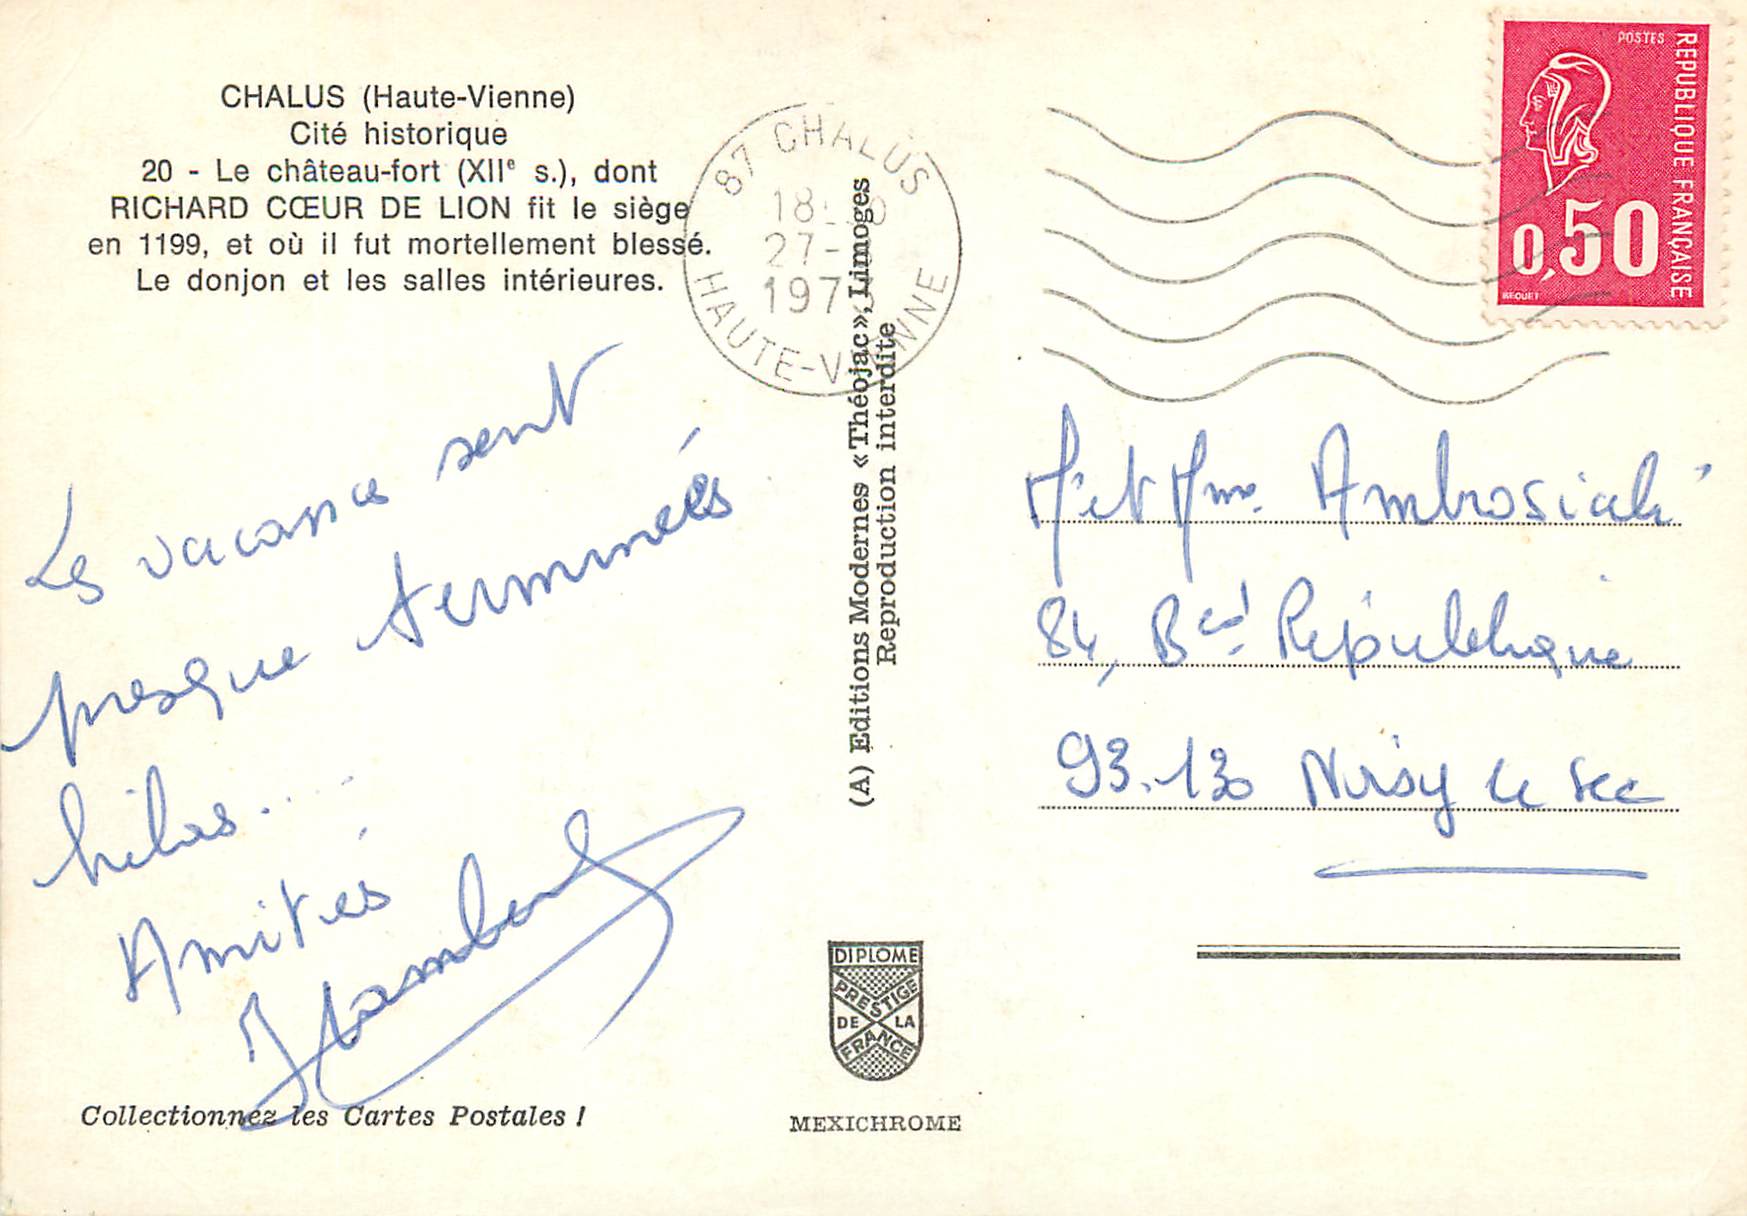 CHALUS (Haute-Vienne)
Cité historique
20 - Le château-fort (XIIe s.), dont
RICHARD CŒUR DE LION fit le siège
en 1199, et où il fut mortellement blessé.
Le donjon et les salles intérieures.
Les vacances sont
presque terminées
hélas....
Amitiés
Collectionnez les Cartes Postales !
87 CHALUS
18
27-
197
HAUTE-VIENNE
(A) Editions Modernes « Théojac », Limoges
Reproduction interdite
DIPLOME
PRESTIGE
DE LA
FRANCE
MEXICHROME
POSTES
REPUBLIQUE FRANÇAISE
0,50
BEQUET
M et Mme
84, Bd République
93.130 Noisy le Sec